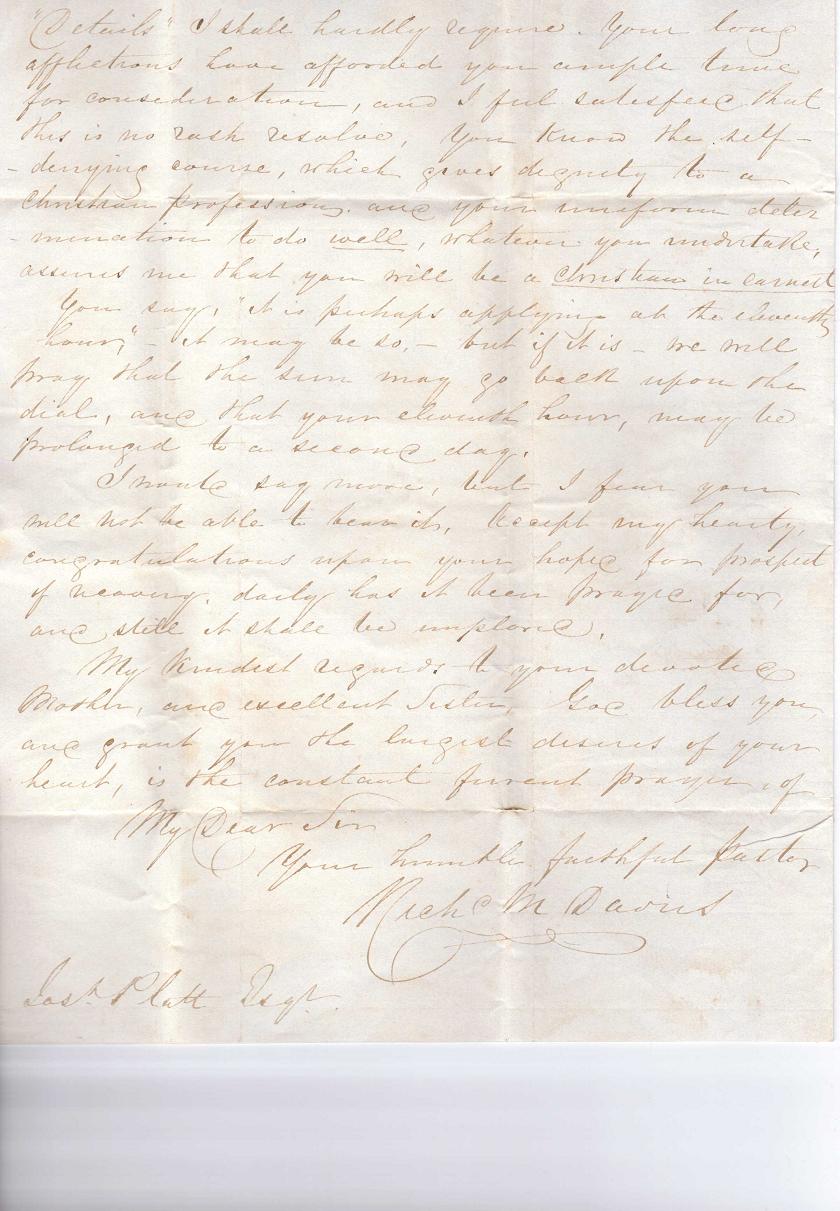 "Details" I shall hardly require. Your long
afflictions have afforded you ample time
for consideration, and I feel satisfied that
this is no rash resolve, You know the self-
-denying course, which gives dignity to a
Christian profession. and your uniform deter
-mination to do well, whatever you undertake,
assures me that you will be a Christian in earnest
You say, "it is perhaps applying at the eleventh
hour," - it may be so, - but if it is - we will
pray that the sun may go back upon the
dial, and that your eleventh hour, may be
prolonged to a second day.
I would say more, but I fear you
will not be able to bear it. Accept my hearty,
congratulations upon your hoped for prospect
of recovery. daily has it been prayed for,
and still it shall be implored.
My kindest regards to your devoted
Mother, and excellent Sister, God bless you,
and grant you the largest desires of your
heart, is the constant fervent prayer, of
My Dear Sir
Your humble faithful Pastor
Richd M Davis
Josh. Platt Esqr.